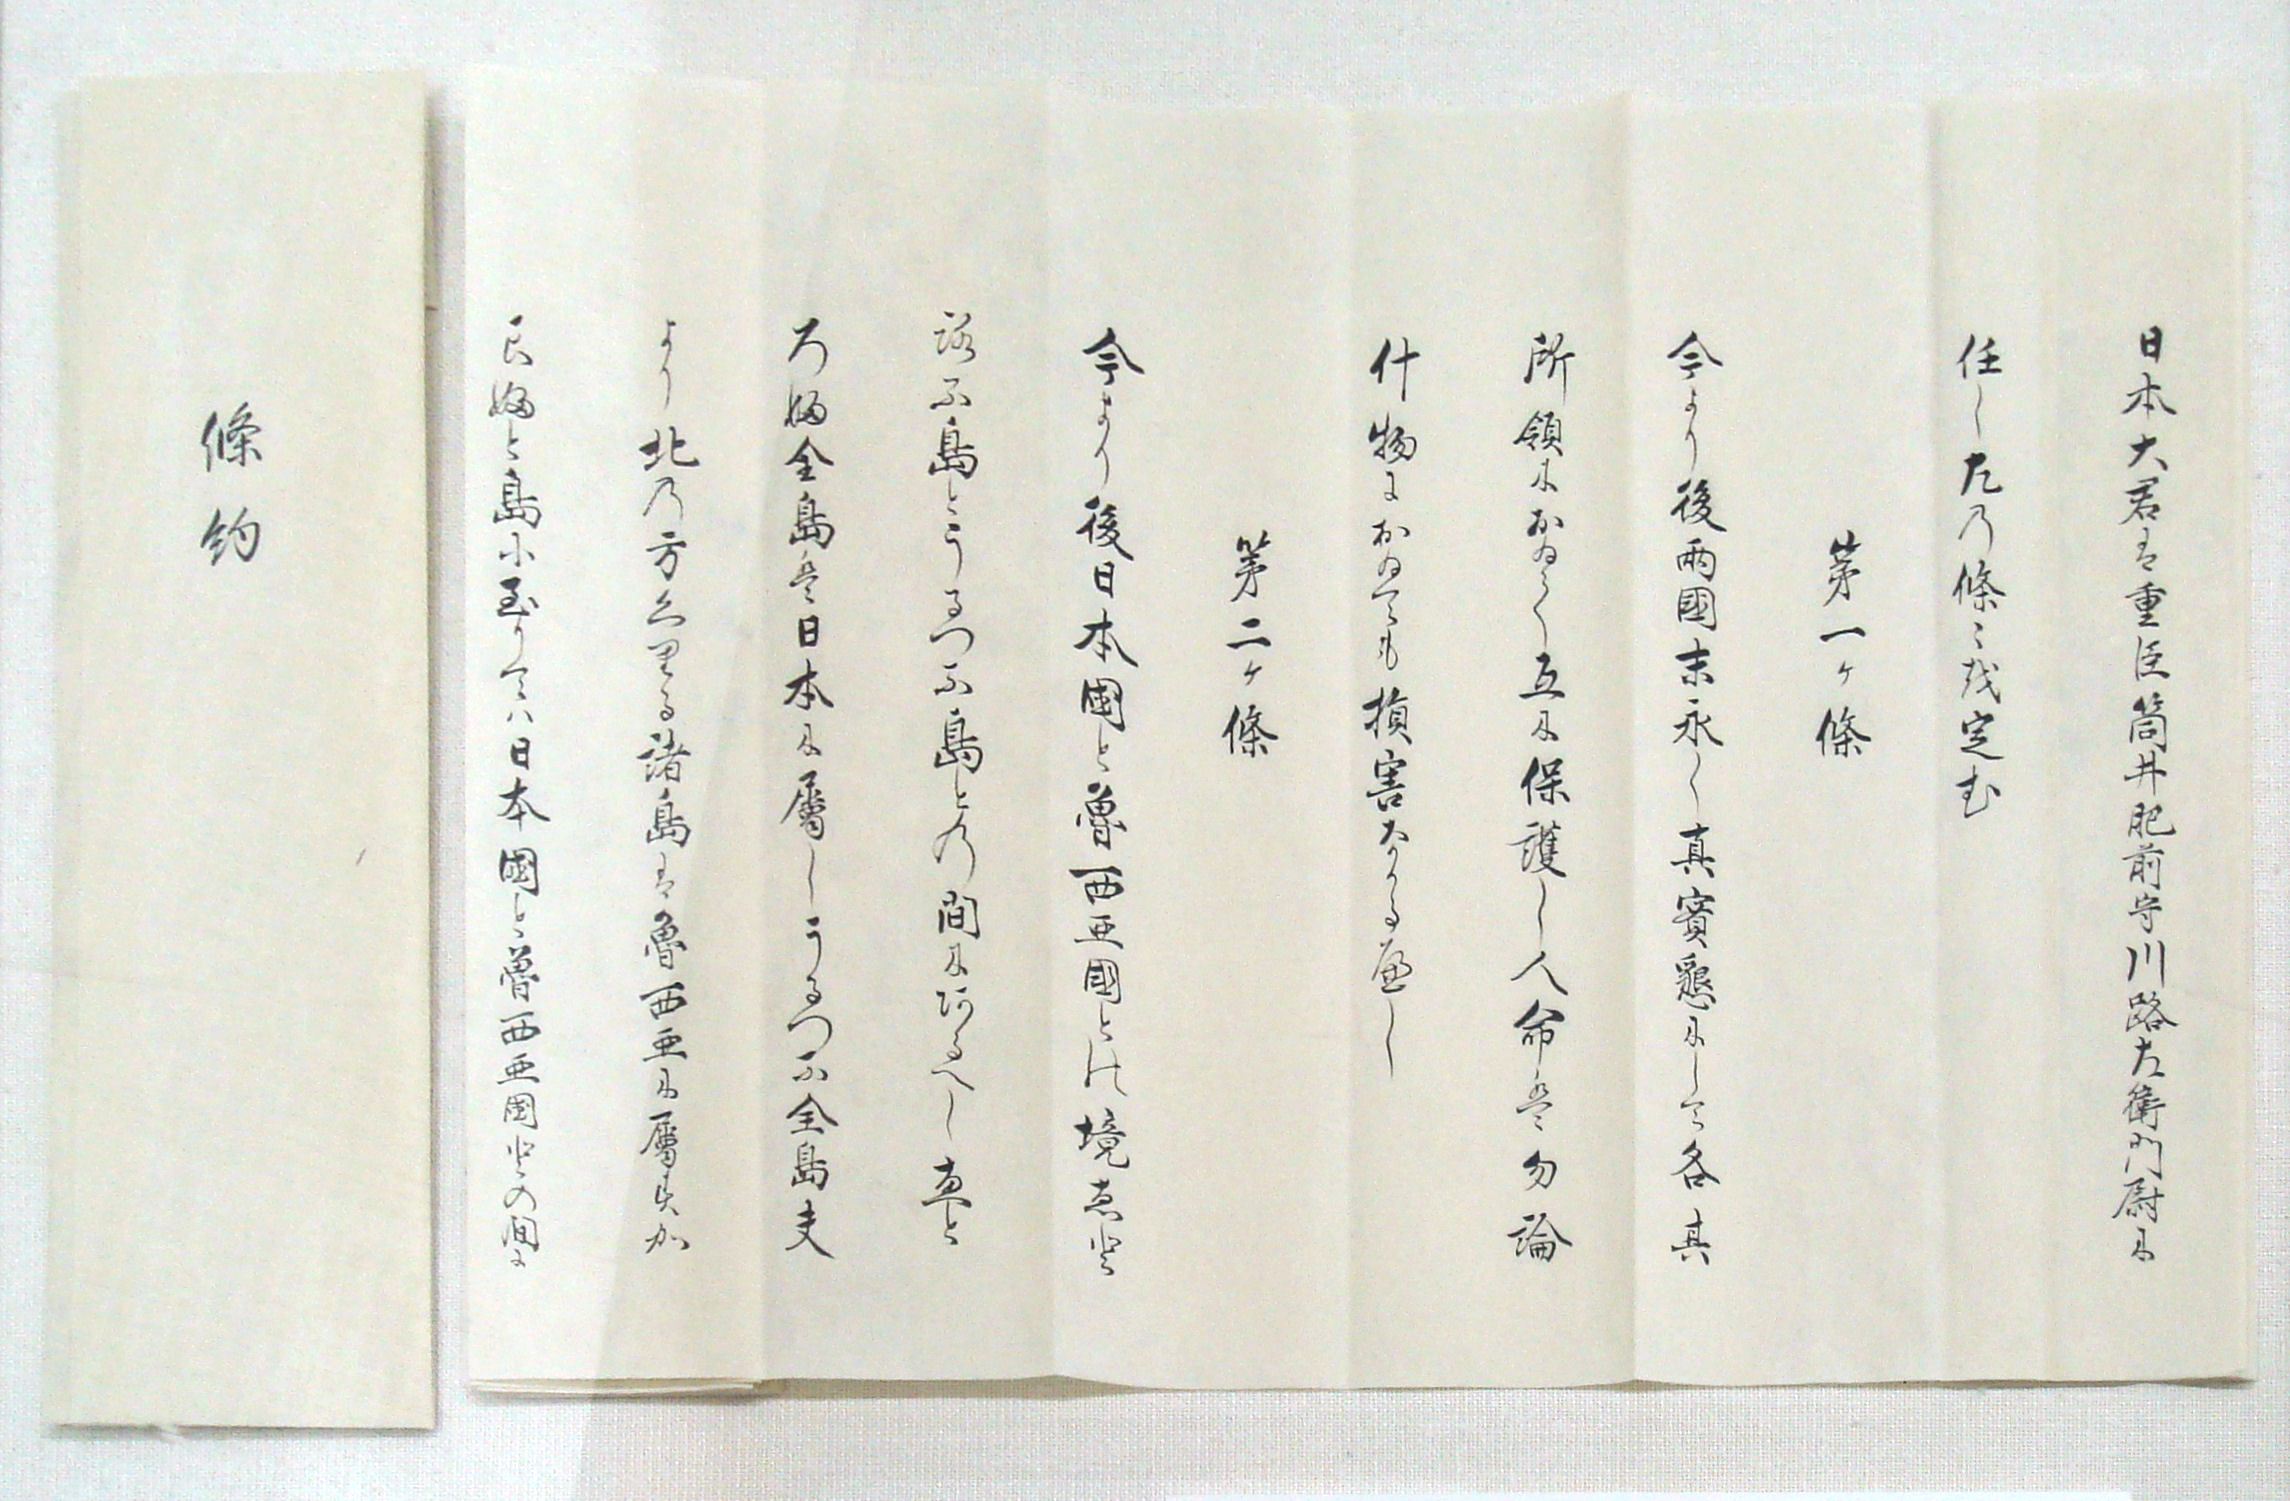 日本大君は重臣筒井肥前守川路左衛門尉に
任し左の條々を定む
第一ヶ條
今より後両國末永く真實懇にして各其
所領において互に保護し人命は勿論
什物においても損害なかるへし
第二ヶ條
今より後日本國と魯西亜國との境ゑと
ろふ島とうるつふ島との間にあるへしゑと
ろふ全島は日本に属しうるつふ全島夫
より北の方くりる諸島は魯西亜に属すか
らふと島に至りてハ日本國と魯西亜國との間に
條約